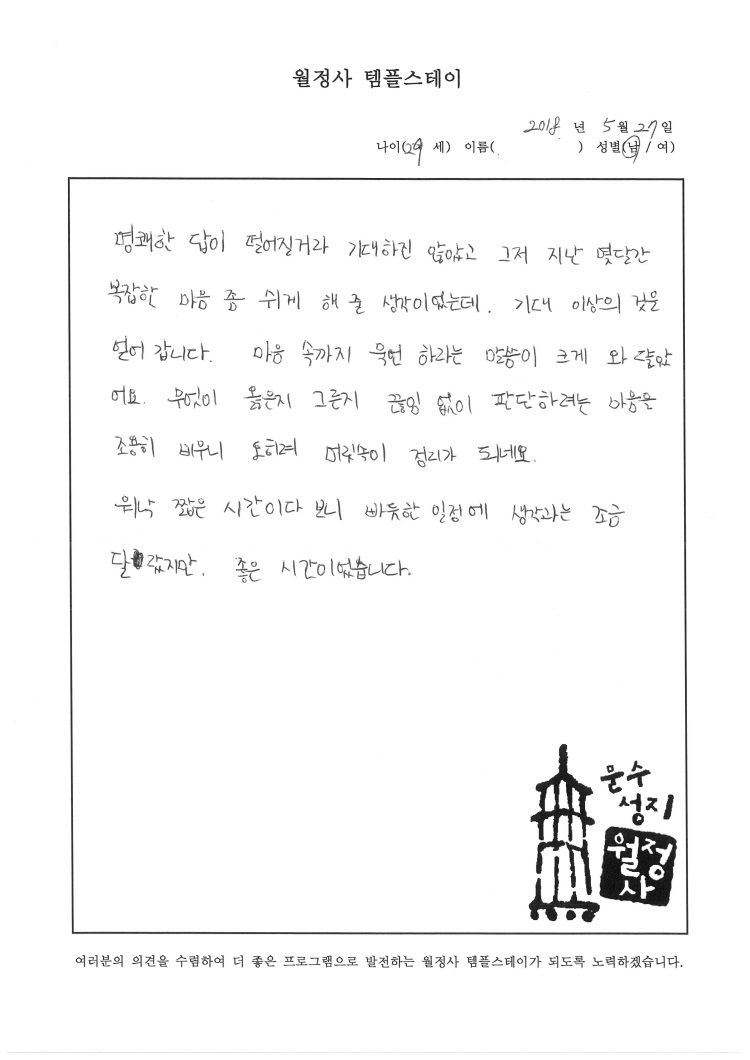 월정사 템플스테이
2018 년 5월 27일
나이(29 세) 이름( ) 성별(남 / 여)
명쾌한 답이 떨어질거라 기대하진 않았고 그저 지난 몇달간
복잡한 마음 좀 쉬게 해 줄 생각이었는데, 기대 이상의 것을
얻어 갑니다. 마음 속까지 묵언 하라는 말씀이 크게 와 닿았
어요. 무엇이 옳은지 그른지 끊임 없이 판단하려는 마음을
조용히 비우니 오히려 머릿속이 정리가 되네요.
워낙 짧은 시간이다 보니 빠듯한 일정에 생각과는 조금
달랐지만, 좋은 시간이었습니다.
문수
성지
월정
사
여러분의 의견을 수렴하여 더 좋은 프로그램으로 발전하는 월정사 템플스테이가 되도록 노력하겠습니다.